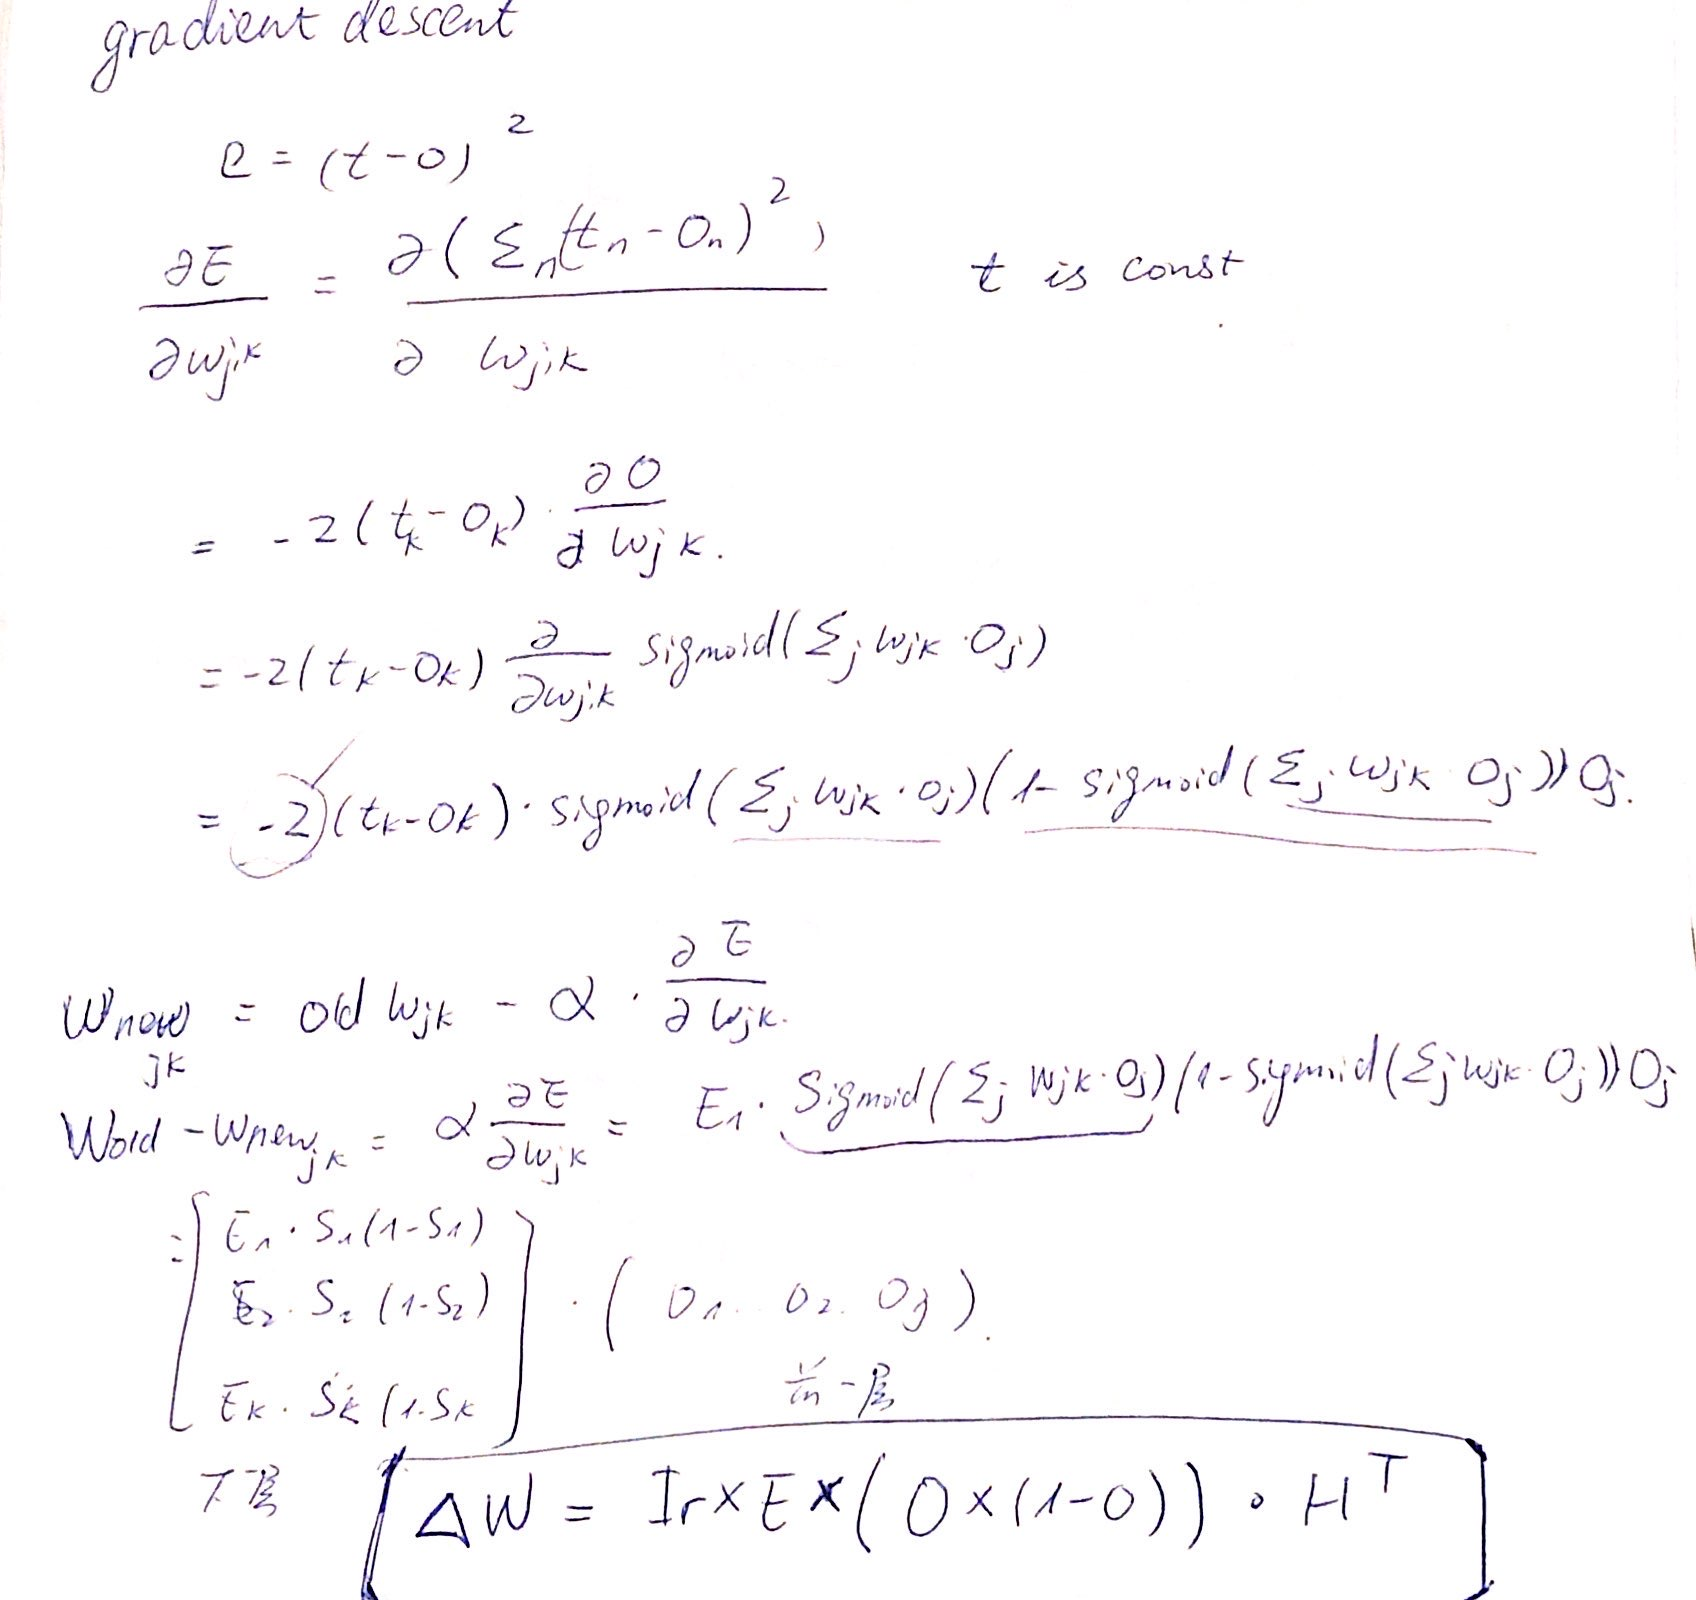 gradient descent
e = (t-o)²
∂E/∂wj,k = ∂(Σn(tn-On)²)/∂ wj,k t is const
= -2(tk-Ok) · ∂O/∂wjk.
= -2(tk-Ok) ∂/∂wj,k sigmoid(Σj wjk·Oj)
= -2(tk-Ok)·sigmoid(Σj wjk·oj)(1-sigmoid(Σj wjk·Oj))Oj.
Wnew jk = old wjk - α · ∂E/∂wjk.
Wold - Wnew jk = α ∂E/∂wjk = E1 · Sigmoid(Σj wjk·Oj)(1-sigmoid(Σj wjk·Oj))Oj
= [E1·S1(1-S1)
E2·S2(1-S2) · (O1 O2 Oj).
Ek·Sk(1-Sk]
上-层
下-层
ΔW = lr×E×(O×(1-O)) · Hᵀ